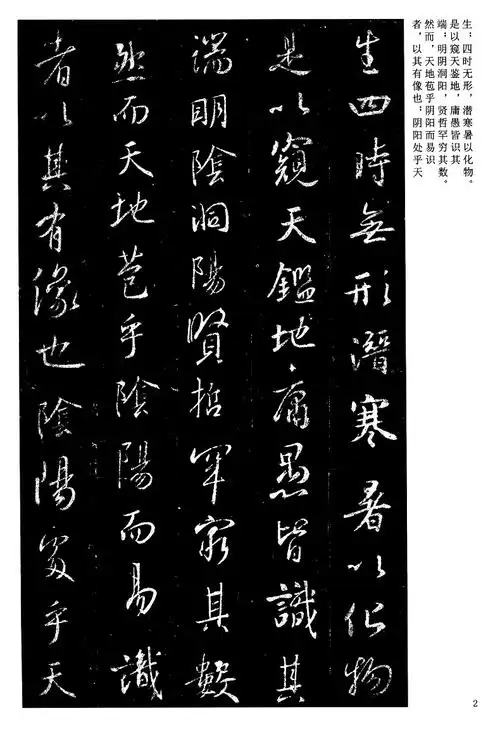 生；四时无形，潜寒暑以化物。
是以窥天鉴地，庸愚皆识其
端；明阴洞阳，贤哲罕穷其数。
然而，天地苞乎阴阳而易识
者，以其有像也；阴阳处乎天
生四時無形潛寒暑以化物
是以窺天鑑地庸愚皆識其
端明陰洞陽賢哲罕窮其數
然而天地苞乎陰陽而易識
者以其有像也陰陽處乎天
2